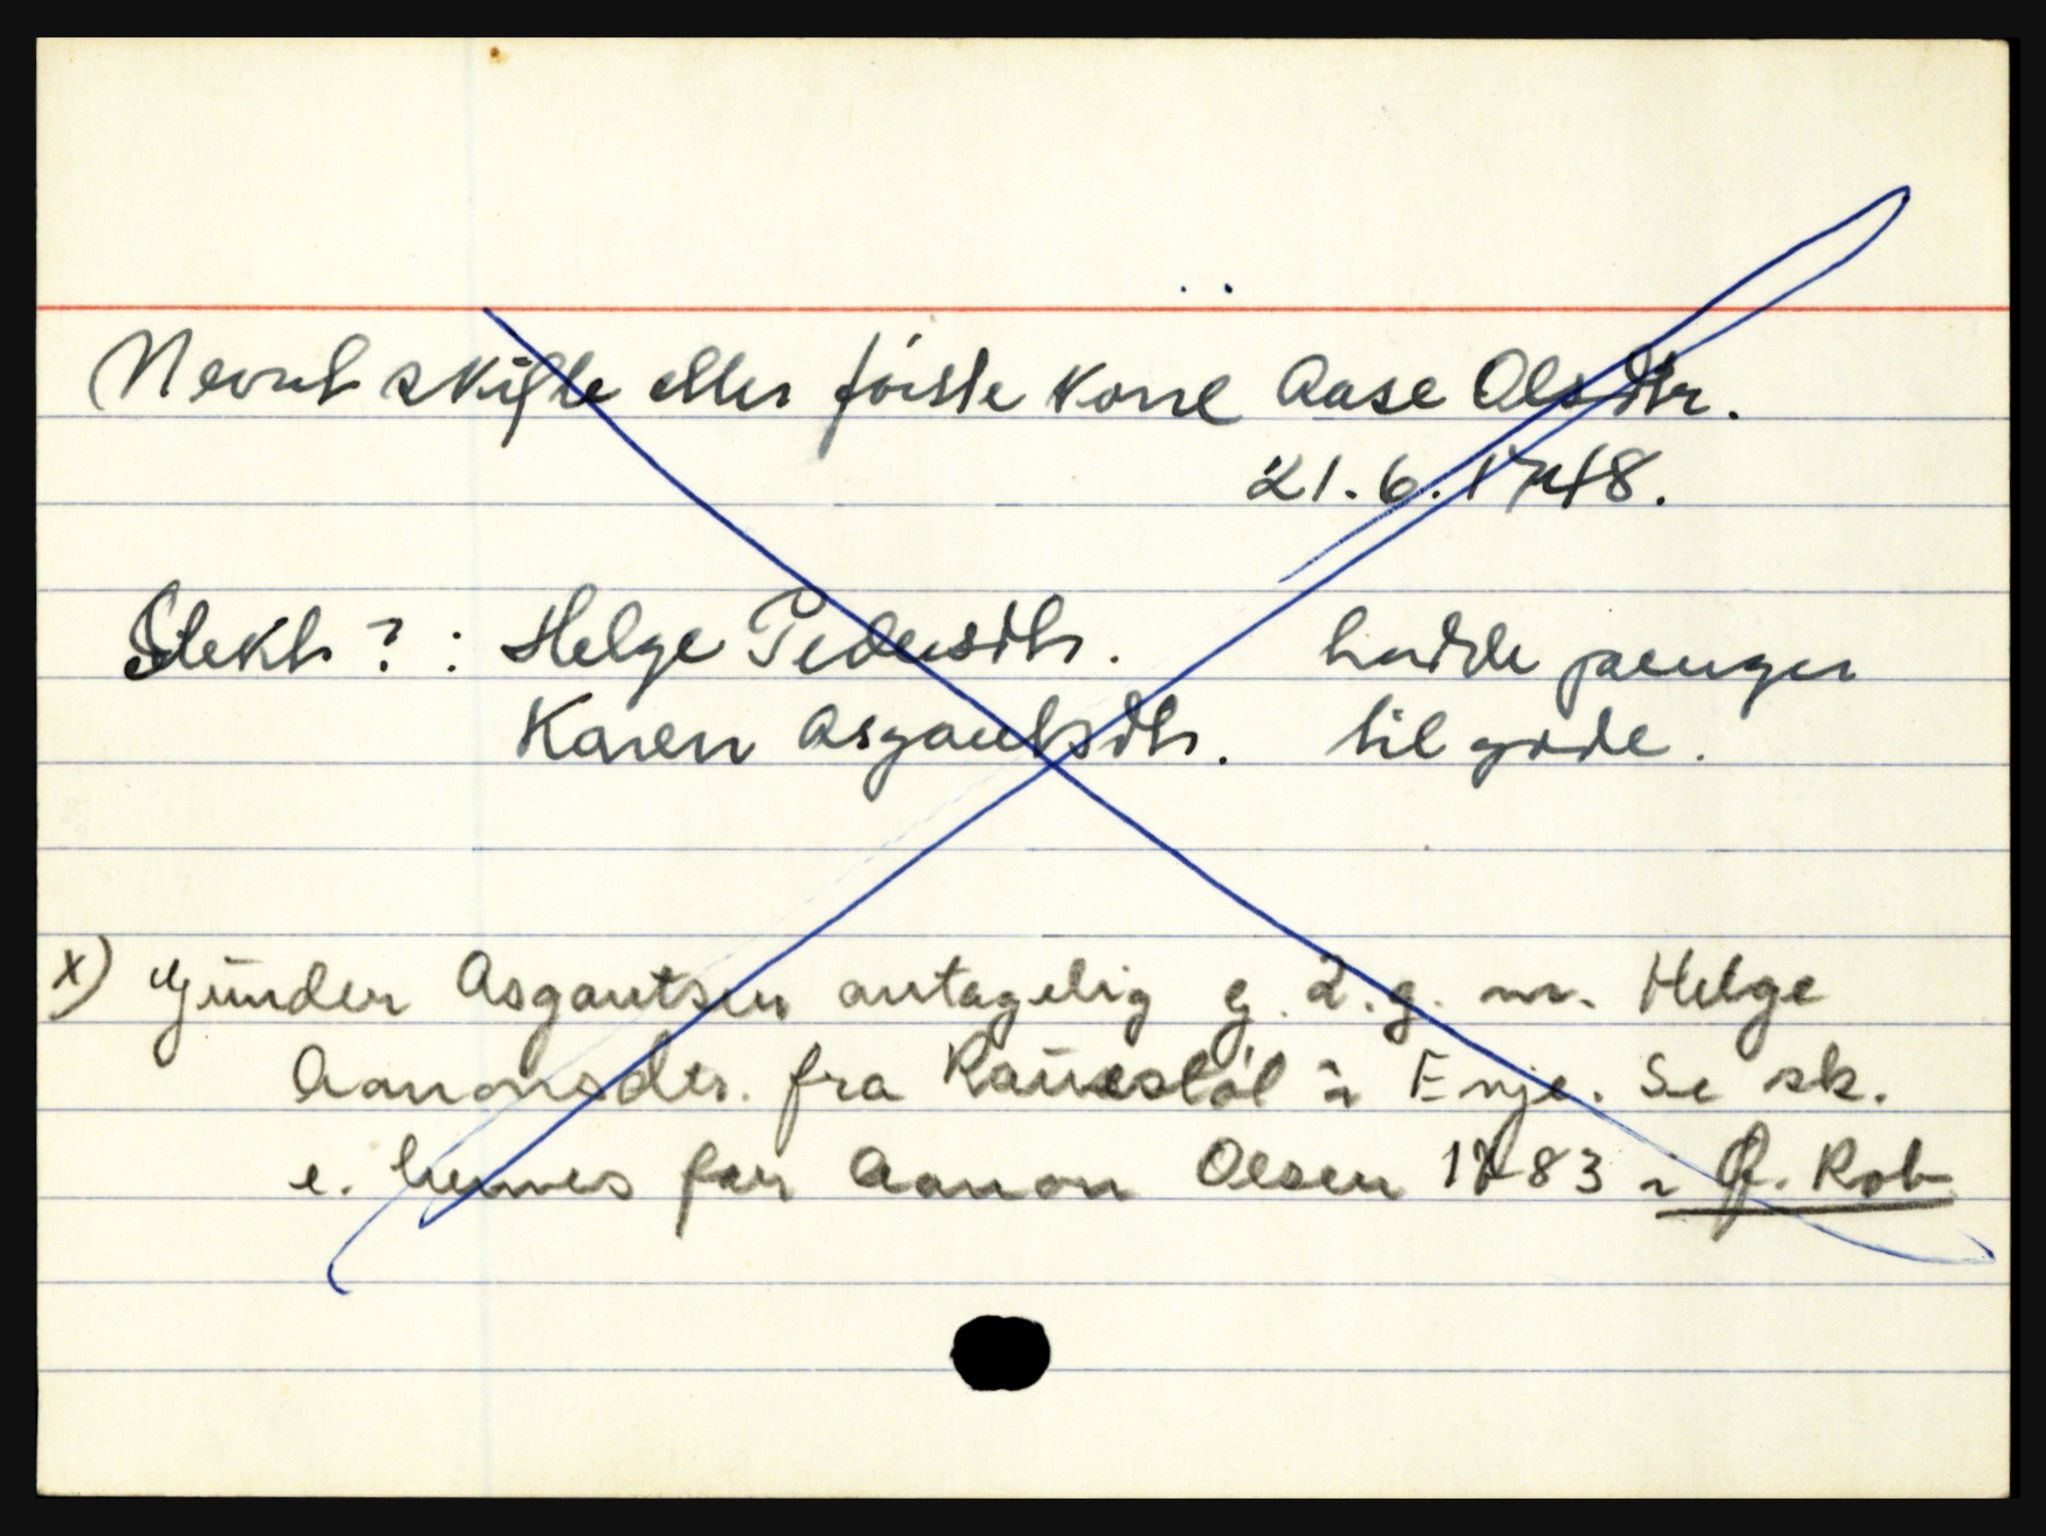 Nevnt skifte etter første kone Aase Olsdtr.
21.6.1748.
Slekt ? : Helge Pedersdtr. hadde penger
Karen Asgautsdtr. til gode.
x) Gunder Asgautsen antagelig g. 2. g. m. Helge
Aanonsdtr. fra Rauestøl i Evje. Se sk.
e. hennes far Aanon Olsen 1783 i Ø. Rob.